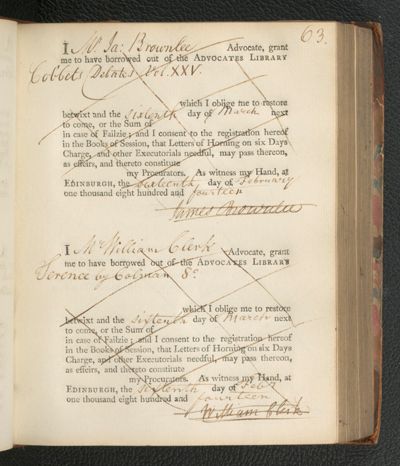 63.
I Mr Ja: Brownlee Advocate, grant
me to have borrowed out of the ADVOCATES LIBRARY
Cobbets Debates Vol. XXV.
which I oblige me to restore
betwixt and the sixteenth day of March next
to come, or the Sum of
in case of Failzie; and I consent to the registration hereof
in the Books of Session, that Letters of Horning on six Days
Charge, and other Executorials needful, may pass thereon,
as effeirs, and thereto constitute
my Procurators. As witness my Hand, at
EDINBURGH, the sixteenth day of February
one thousand eight hundred and fourteen
James Brownlee
I Mr William Clerk Advocate, grant
me to have borrowed out of the ADVOCATES LIBRARY
Terence by Colman 8o.
which I oblige me to restore
betwixt and the sixteenth day of March next
to come, or the Sum of
in case of Failzie; and I consent to the registration hereof
in the Books of Session, that Letters of Horning on six Days
Charge, and other Executorials needful, may pass thereon,
as effeirs, and thereto constitute
my Procurators. As witness my Hand, at
EDINBURGH, the sixteenth day of Febry
one thousand eight hundred and fourteen
William Clerk